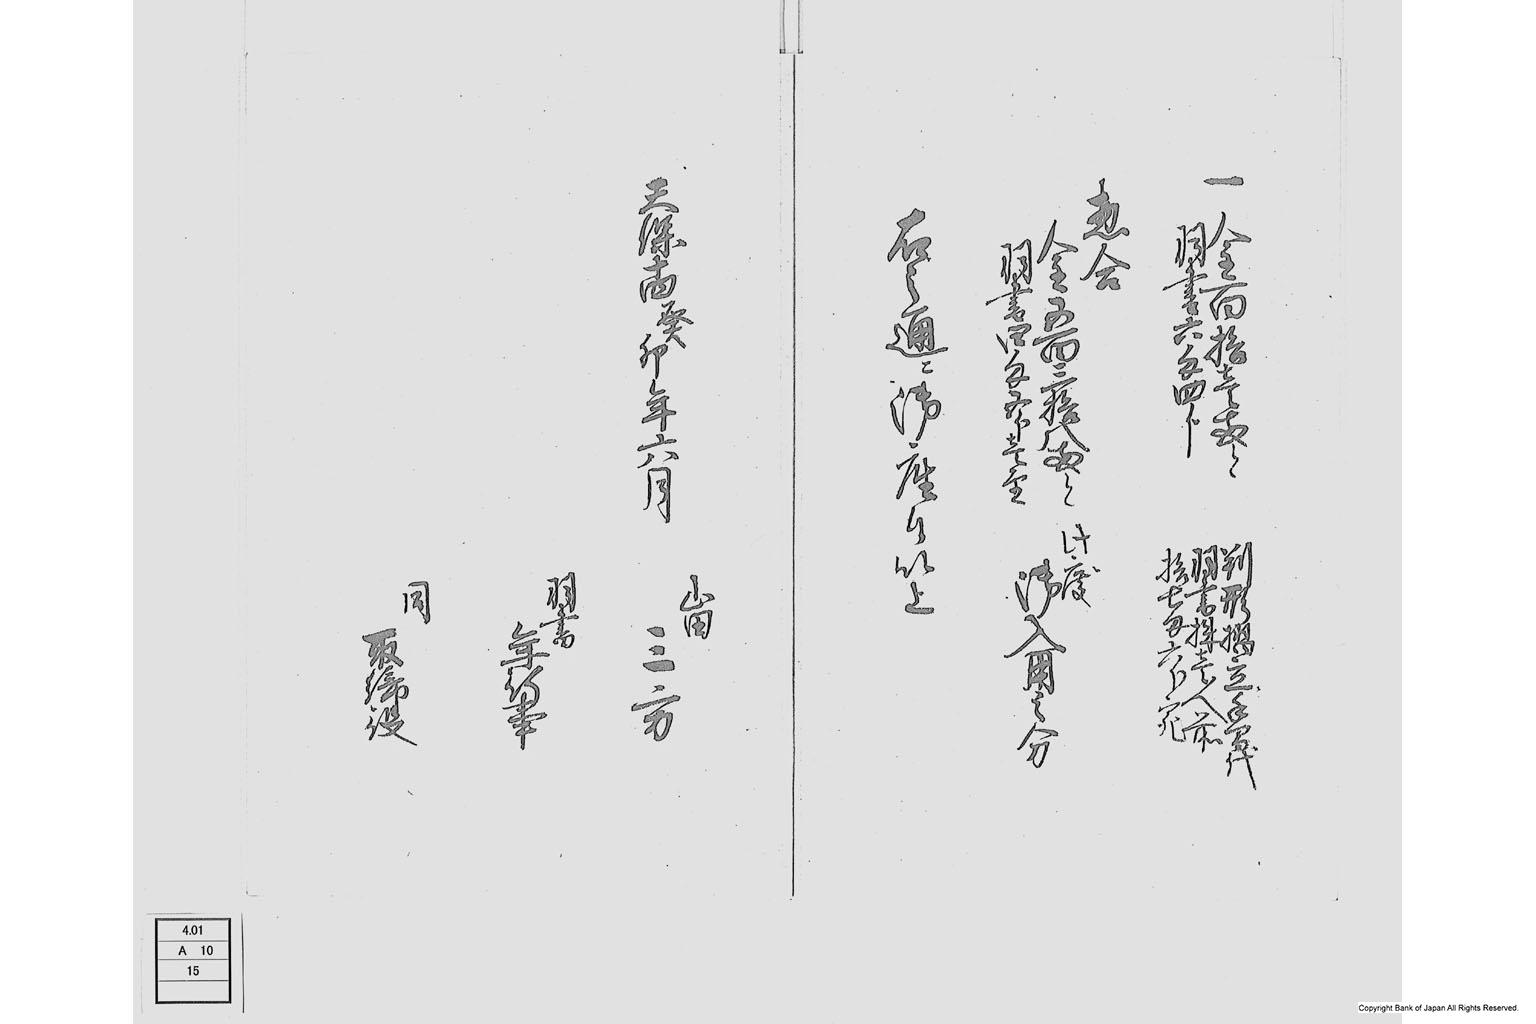 一 金百拾壱両ト
羽書六匁四分
判形摺立手間代
羽書株壱人前
拾七匁六分宛
惣合
金五百三拾八両ト
羽書四匁五分壱厘
此度
御入用之分
右之通ニ御座候以上
天保十四癸卯年六月
山田
三方
羽書
年行事
同
取締役
4.01
A 10
15
Copyright Bank of Japan All Rights Reserved.